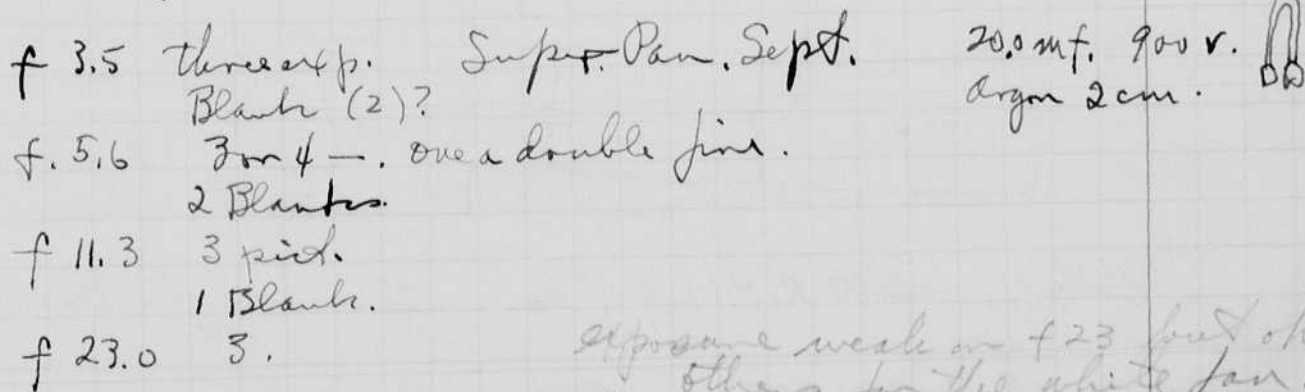 f 3.5 three exp. Super. Pan. Sept. 20.0 mf. 900 v.
Blank (2)? Argon 2 cm.
f. 5.6 3 or 4 —. one a double fire.
2 Blanks.
f 11.3 3 pict.
1 Blank.
f 23.0 3.
exposure weak on f 23 but ok
others for the white fan